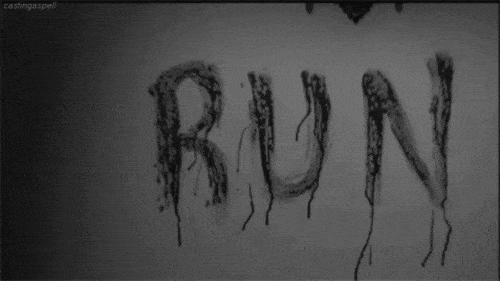 castingaspell
RUN